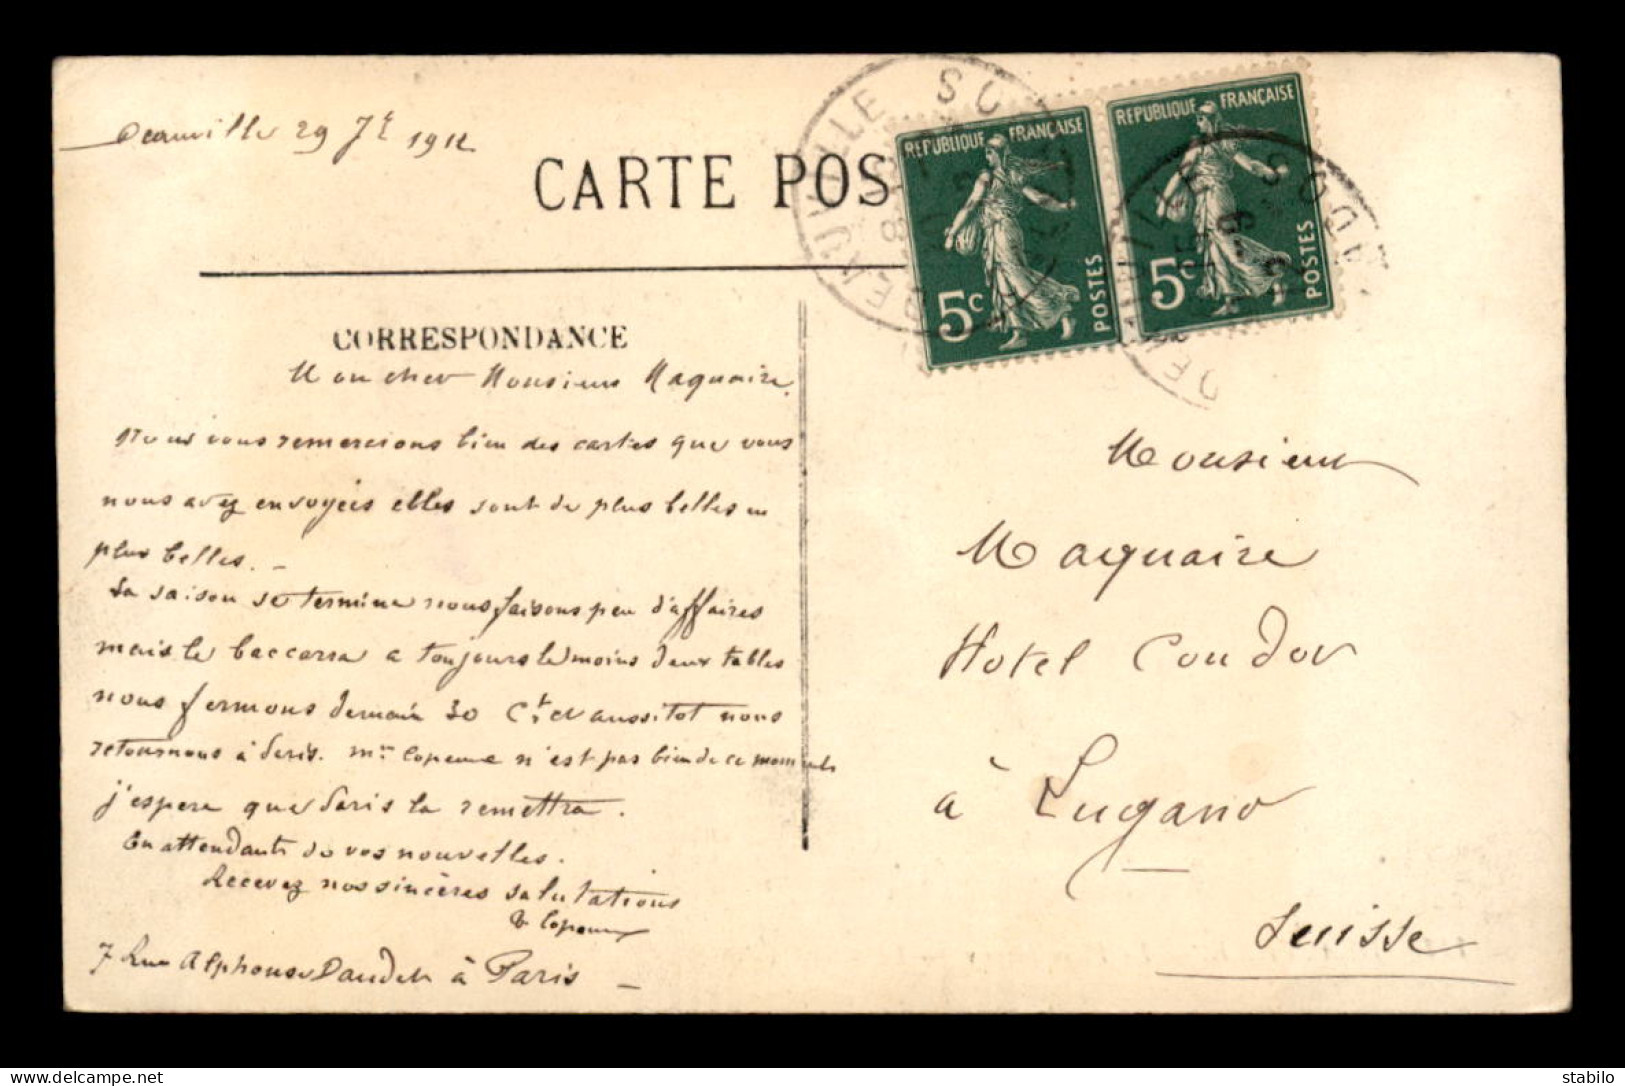 Deauville 29 7e 1912
CARTE POS
CORRESPONDANCE
Mon cher Monsieur Maquaire
Nous vous remercions bien des cartes que vous
nous avez envoyées elles sont de plus belles en
plus belles. -
La saison se termine nous faisons peu d'affaires
mais le baccarra a toujours le moins deux tables
nous fermons demain 30 Ct et aussitot nous
retournons à Paris. Mme n'est pas bien de ce moment
j'espere que Paris la remettra.
En attendant de vos nouvelles.
Recevez nos sincères salutations
7 Rue Alphonse Daudet à Paris
REPUBLIQUE FRANÇAISE
5c POSTES
REPUBLIQUE FRANÇAISE
5c POSTES
DEAUVILLE
Monsieur
Maquaire
Hotel Condor
à Lugano
Suisse
www.delcampe.net
stabilo